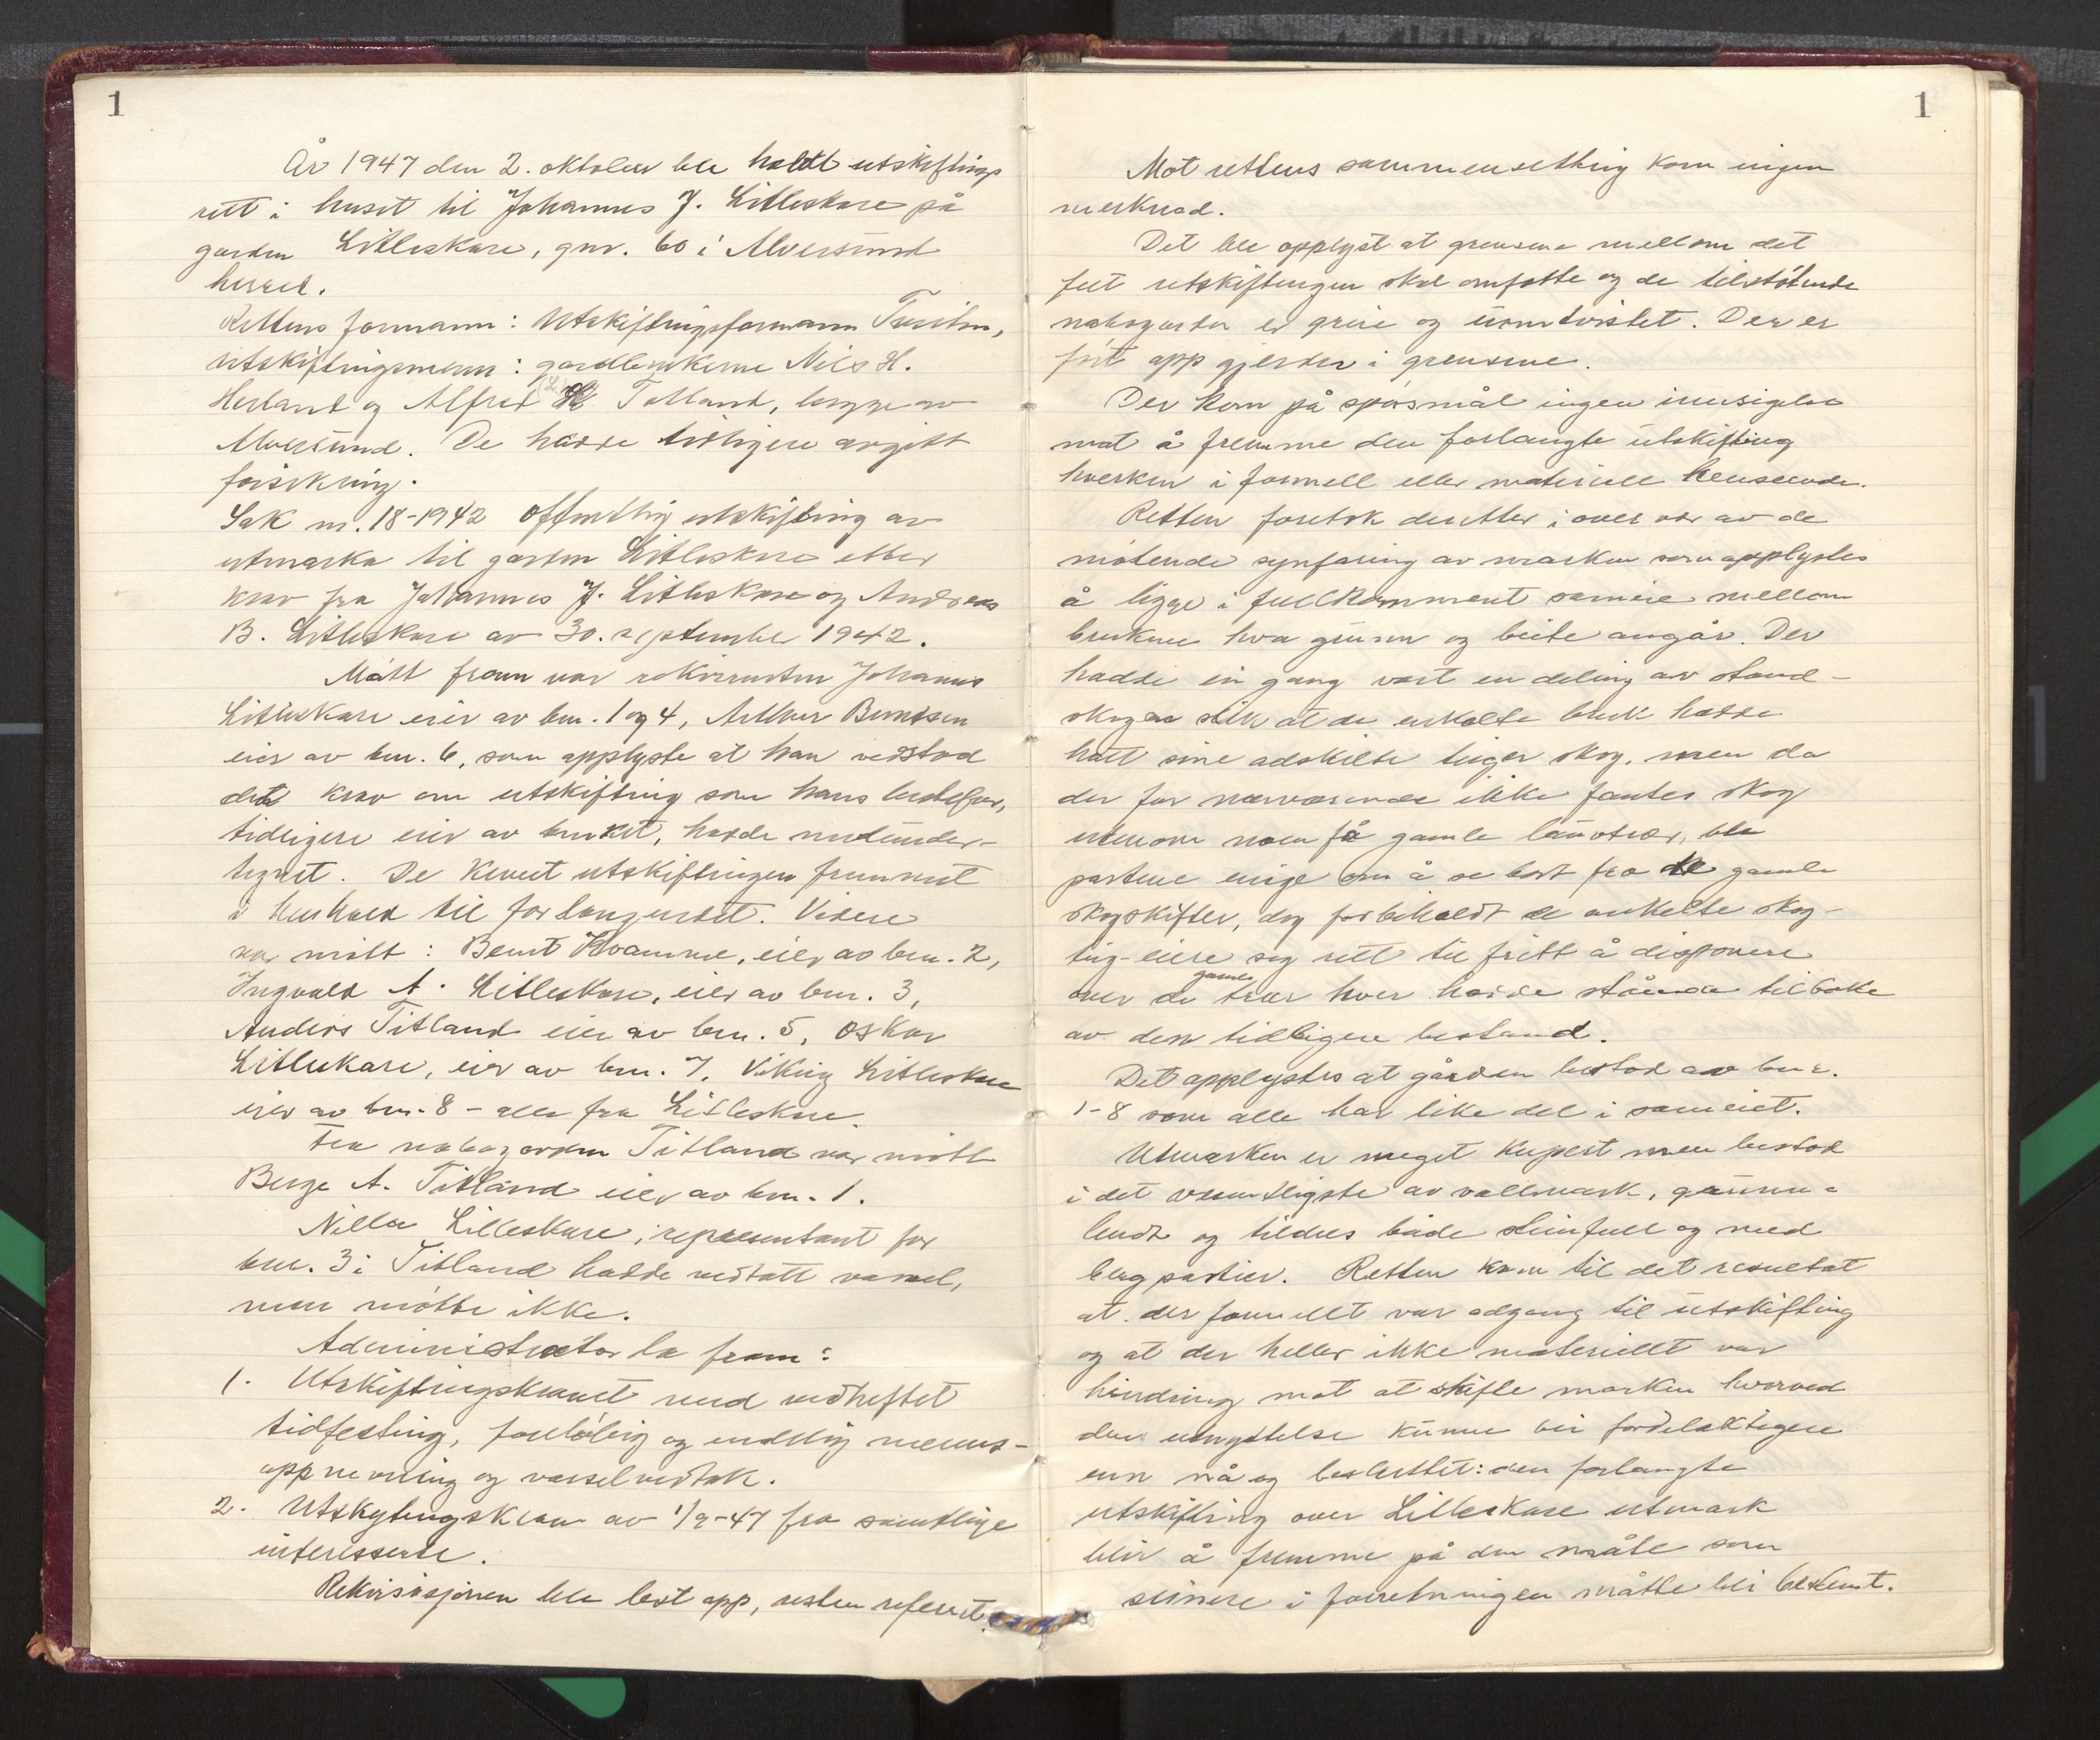 1
År 1947 den 2. oktober ble holdt utskiftings
rett i huset til Johannes J. Litleskare på
garden Litleskare, gnr. 60 i Alversund
herred.
Rettens formann: Utskiftingsformann
utskiftingsmenn: gardbrukerne Nils H.
Herland og Alfred Tolland, begge av
Alversund. De hadde tidligere avgitt
forsikring.
Sak nr. 18-1942 Offentlig utskifting av
utmarka til garden Litleskare etter
krav fra Johannes J. Litleskare og Andreas
B. Litleskare av 30. septembr 1942.
Møtt fram var rekvirenten Johannes
Litleskare eier av bnr. 1 og 4, Arthur Berntsen
eier av bnr. 6, som opplyste at han vedstod
det krav om utskifting som hans bestefar,
tidligere eier av bruket, hadde medunder-
tegnet. De krevet utskiftingen fremmet
i henhold til forlangendet. Videre
var møtt: Bernt Kvamme, eier av bnr. 2,
Ingvald A. Litleskare, eier av bnr. 3,
Anders Titland eier av bnr. 5, Oskar
Litleskare, eier av bnr. 7, Viking Litleskare
eier av bnr. 8 - alle fra Litleskare.
Fra nabogarden Titland var møtt
Berge A. Titland eier av bnr. 1.
Nille Lilleskare, representant for
bnr. 3 i Titland hadde vedtatt varsel,
men møtte ikke.
Administrator la fram:
1. Utskiftingskravet med vedheftet
tidfesting, foreløbig og endelig menns-
oppnevning og varselvedtak.
2. Utskytingskrav av 1/9-47 fra samtlige
interesserte.
Rekvisisjonen ble lest opp, resten referert.
1
Mot rettens sammensetting kom ingen
merknad.
Det ble opplyst at grensene mellom det
felt utskiftingen skal omfatte og de tilstøtende
nabogarder er greie og uomtvistet. Der er
ført opp gjerder i grensene.
Der kom på spørsmål ingen innsigelse
mot å fremme den forlangte utskifting
hverken i formell eller materiell henseende.
Retten foretok deretter i overvær av de
møtende synfaring av marken som opplystes
å ligge i fullkomment sameie mellom
brukene hva grunn og beite angår. Der
hadde en gang vært en deling av stand-
skogen slik at de enkelte bruk hadde
hatt sine adskilte teiger skog, men da
der for nærværende ikke fantes skog
utenom noen få gamle lauvtrær, ble
partene enige om å se bort fra de gamle
skogskifter, dog forbeholdt de enkelte skog-
teig-eiere seg rett til fritt å disponere
over de gamle trær hver hadde stående tilbake
av den tidligere bestand.
Det opplystes at gården bestod av bnr.
1-8 som alle har like del i sameiet.
Utmarken er meget kupert men bestod
i det vesentligste av vallmark,
lendt og tildels både steinfull og med
bergpartier. Retten kom til det resultat
at der formellt var adgang til utskifting
og at der heller ikke materiellt var
hindring mot at skifte marken hvorved
den utnyttelse kunne bli fordelaktigere
enn nå og besluttet: den forlangte
utskifting over Litleskare utmark
blir å fremme på den måte som
seinere i forretningen måtte bli bestemt.